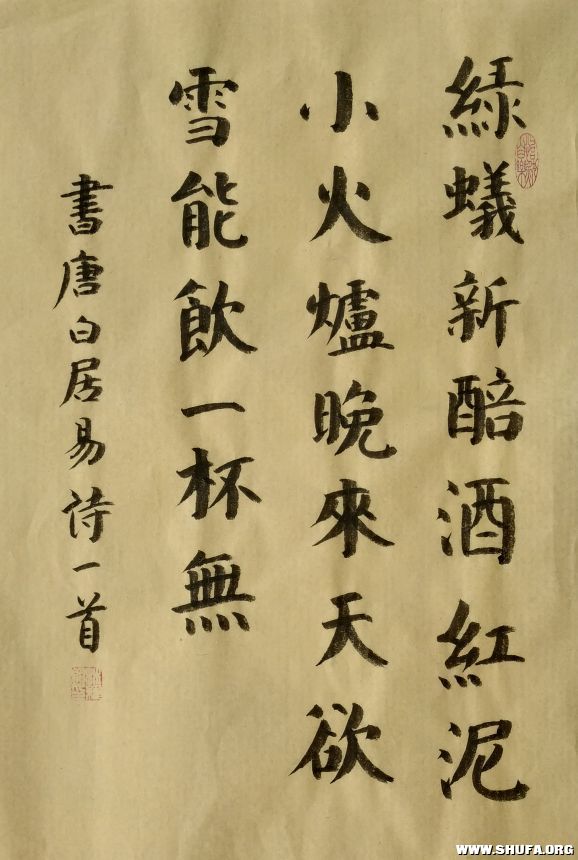 綠蟻新醅酒紅泥
小火爐晚來天欲
雪能飲一杯無
書唐白居易诗一首
WWW.SHUFA.ORG